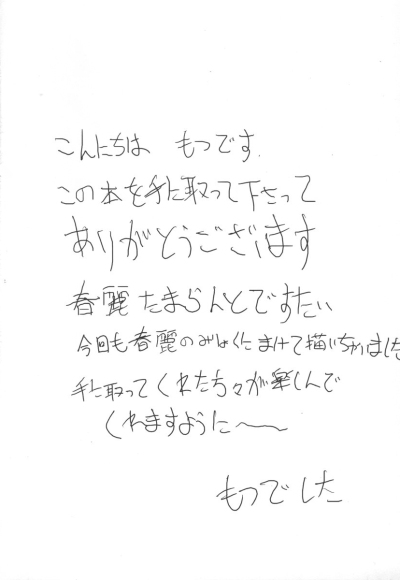 こんにちは もつです.
この本を手に取って下さって
ありがとうございます
春麗たまらんとですたい
今回も春麗のみりょくにまけて描いちゃいました
手に取ってくれた方々が楽しんで
くれますように〜
もつでした